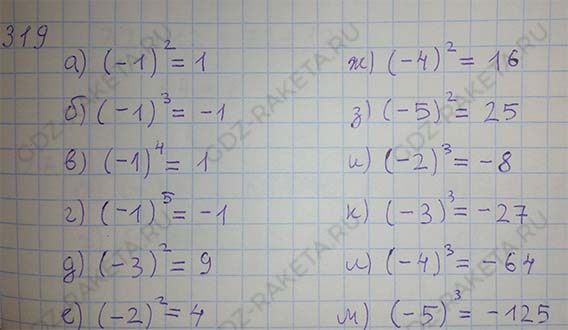 319
а) (-1)² = 1
б) (-1)³ = -1
в) (-1)⁴ = 1
г) (-1)⁵ = -1
д) (-3)² = 9
е) (-2)² = 4
ж) (-4)² = 16
з) (-5)² = 25
и) (-2)³ = -8
к) (-3)³ = -27
л) (-4)³ = -64
м) (-5)³ = -125
GDZ-RAKETA.RU
GDZ-RAKETA.RU
GDZ-RAKETA.RU
GDZ-RAKETA.RU